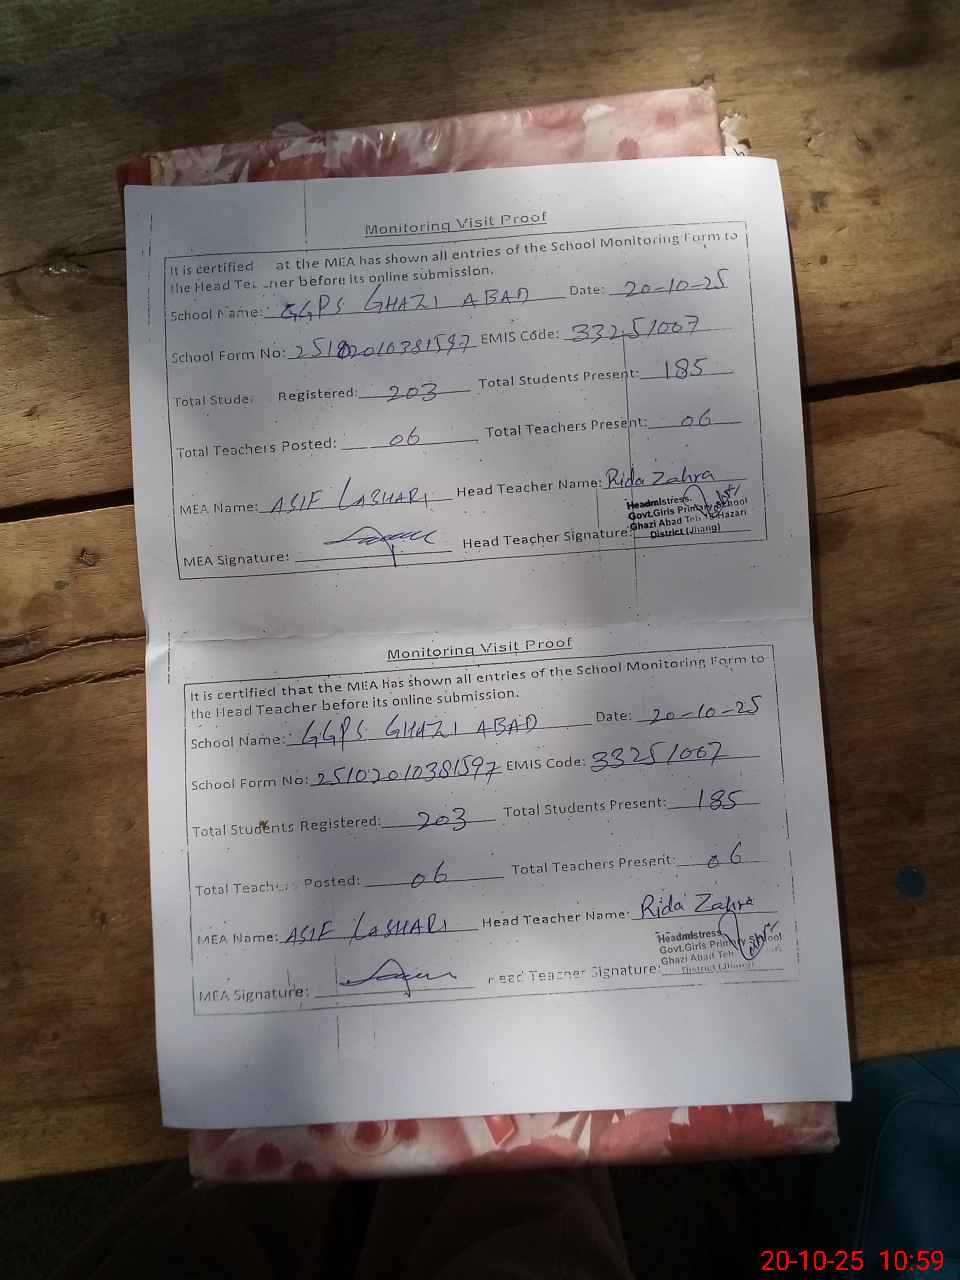 Monitoring Visit Proof
It is certified at the MEA has shown all entries of the School Monitoring Form to
the Head Teacher before its online submission.
School Name: GGPS GHAZI ABAD Date: 20-10-25
School Form No: EMIS Code: 33251007
Total Registered: 203 Total Students Present: 185
Total Teachers Posted: 06 Total Teachers Present: 06
MEA Name: ASIF LASHARI Head Teacher Name: Rida Zahra
Headmistress.
Govt.Girls Primary School
Ghazi Abad Teh 18-Hazari
District (Jhang)
MEA Signature: Head Teacher Signature:
Monitoring Visit Proof
It is certified that the MEA has shown all entries of the School Monitoring Form to
the Head Teacher before its online submission.
School Name: GGPS GHAZI ABAD Date: 20-10-25
School Form No: 25102010381597 EMIS Code: 33251007
Total Students Registered: 203 Total Students Present: 185
Total Teachers Posted: 06 Total Teachers Present: 06
MEA Name: ASIF LASHARI Head Teacher Name: Rida Zahra
Headmistress
Govt.Girls Primary School
Ghazi Abad Teh
District (Jhang)
MEA Signature: Head Teacher Signature:
20-10-25 10:59